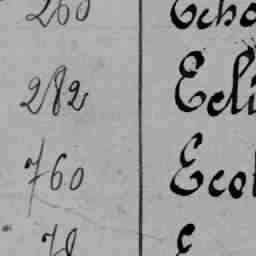 260 Echo
282 Ecli
760 Ecol
78 E